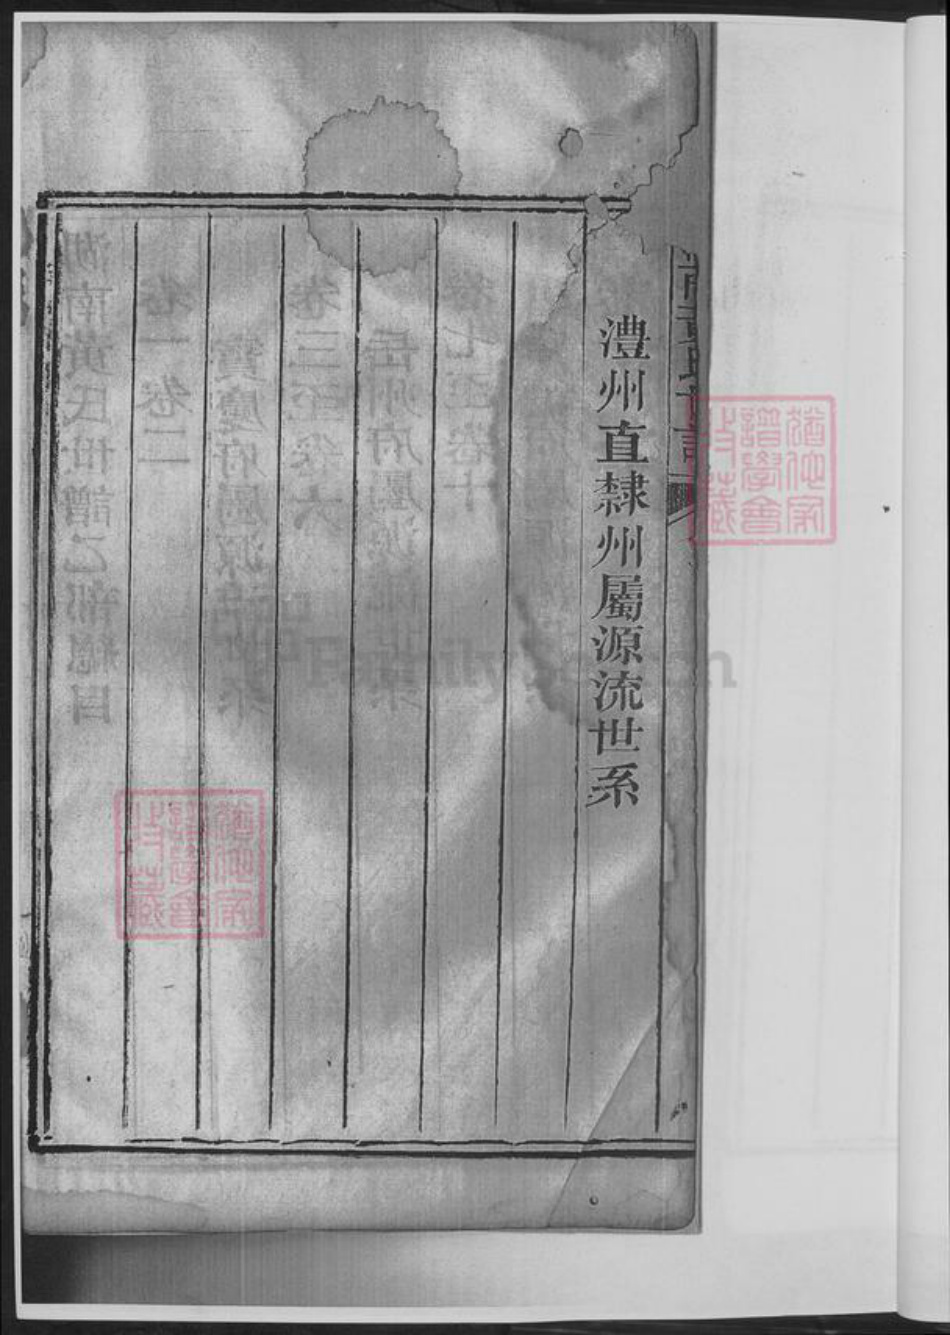 澧州直隸州屬源流世系
湖南黃氏世譜乙部總目
卷一卷二
寶慶府屬源流世系
卷三至卷六
岳州府屬源流世系
卷七至卷十
猶他家譜學會收藏
猶他家譜學會收藏
FamilySearch